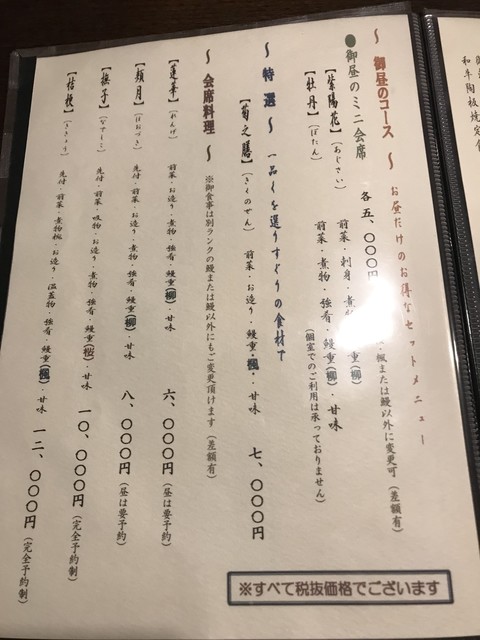 ～ 御昼のコース ～ お昼だけのお得なセットメニュー
●御昼のミニ会席 各五、〇〇〇円
楓または鰻以外に変更可（差額有）
【紫陽花】（あじさい） 前菜・刺身・煮物 （柳）
【牡丹】（ぼたん） 前菜・煮物・強肴・鰻重（柳）甘味
（個室でのご利用は承っておりません）
～ 特選 ～ 一品一品を選りすぐりの食材で
【菊之膳】（きくのぜん） 前菜・お造り・鰻重・楓・甘味 七、〇〇〇円
～ 会席料理 ～ ※御食事は別ランクの鰻または鰻以外にもご変更頂けます（差額有）
【蓮華】（れんげ） 前菜・お造り・煮物・強肴・鰻重（柳）・甘味 六、〇〇〇円（昼は要予約）
【頬月】（ほおづき） 先付・前菜・お造り・煮物・強肴・鰻重（柳）・甘味 八、〇〇〇円（昼は要予約）
【撫子】（なでしこ） 先付・前菜・吸物・お造り・煮物・強肴・鰻重（桜）・甘味 一〇、〇〇〇円（完全予約制）
【桔梗】（ききょう） 先付・前菜・煮物椀・お造り・温蓋物・強肴・鰻重（楓）・甘味 一二、〇〇〇円（完全予約制）
※すべて税抜価格でございます
和牛陶板焼定食